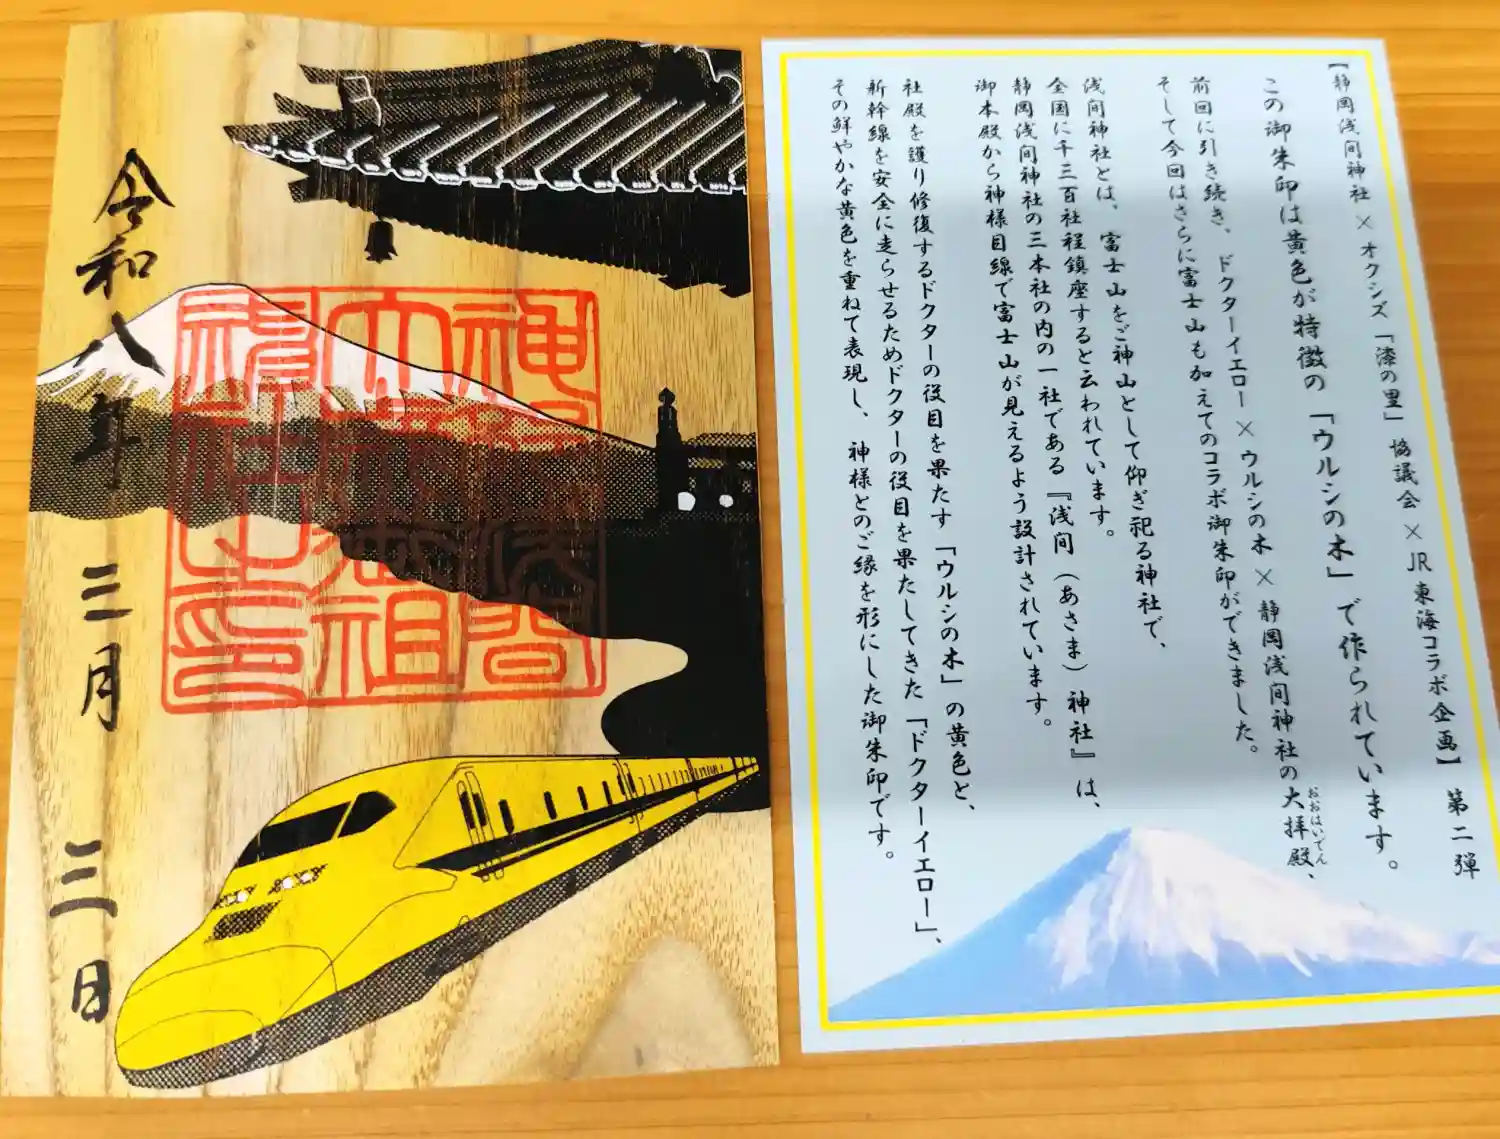 令和八年 三月 三日
神部神社
浅間神社
大歳御祖神社
之印
【静岡浅間神社×オクシズ「漆の里」協議会×JR東海コラボ企画】第二弾
この御朱印は黄色が特徴の「ウルシの木」で作られています。
前回に引き続き、ドクターイエロー×ウルシの木×静岡浅間神社の大拝殿、
おおはいでん
そして今回はさらに富士山も加えてのコラボ御朱印ができました。
浅間神社とは、富士山をご神山として仰ぎ祀る神社で、
全国に千三百社程鎮座すると云われています。
静岡浅間神社の三本社の内の一社である『浅間（あさま）神社』は、
御本殿から神様目線で富士山が見えるよう設計されています。
社殿を護り修復するドクターの役目を果たす「ウルシの木」の黄色と、
新幹線を安全に走らせるためドクターの役目を果たしてきた「ドクターイエロー」、
その鮮やかな黄色を重ねて表現し、神様とのご縁を形にした御朱印です。